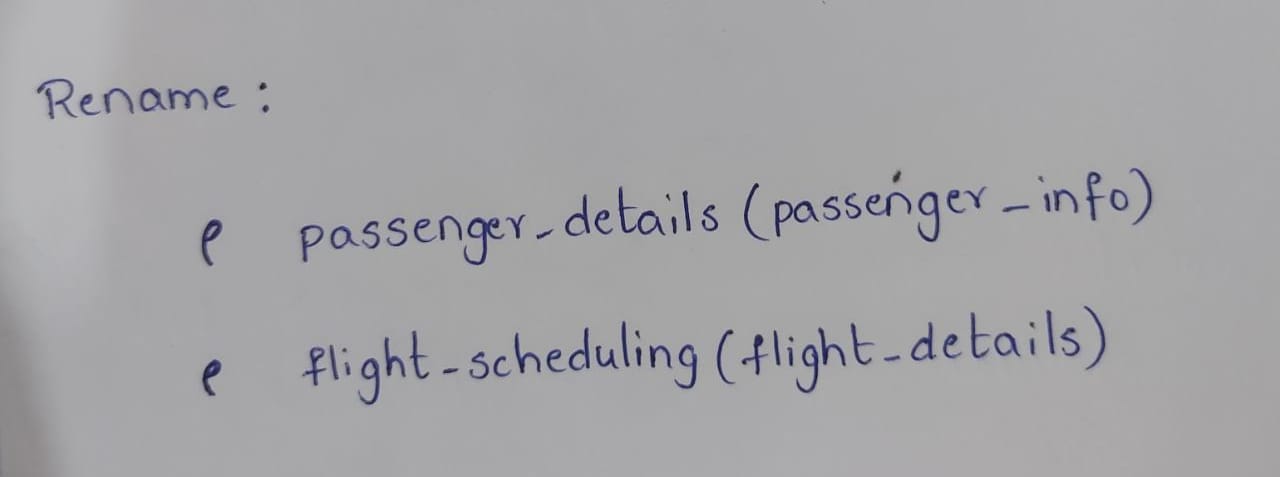 Rename :
ρ passenger_details (passenger_info)
ρ flight_scheduling (flight_details)